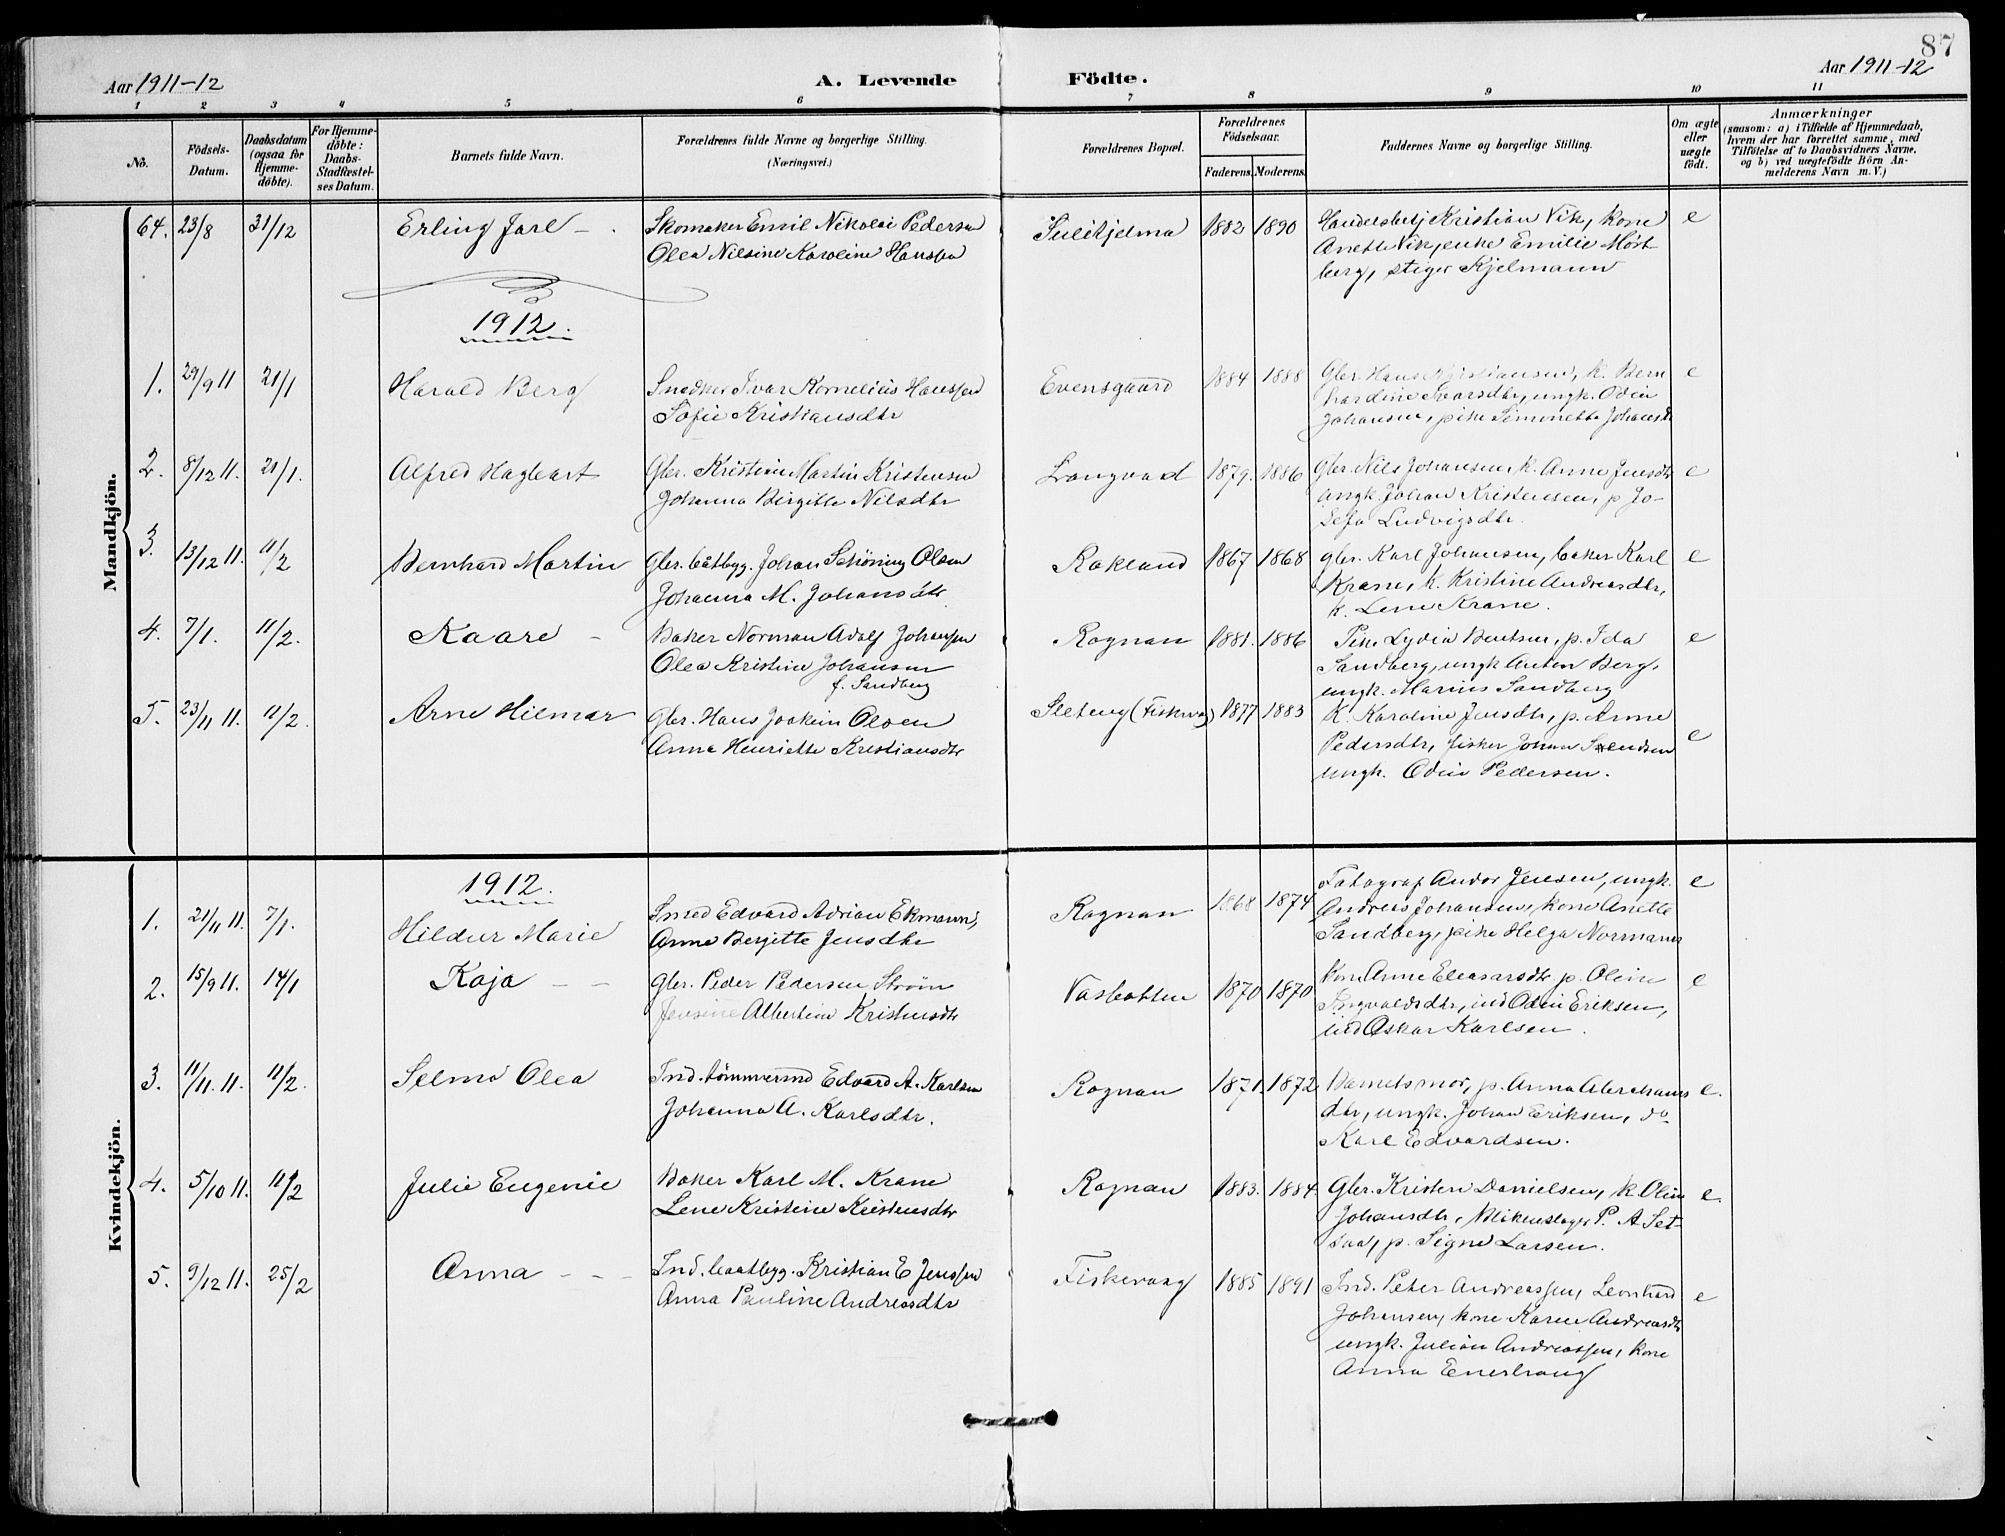 87
Aar 1911-12 A. Levende Födte. Aar 1911-12
1 2 3 4 5 6 7 8 9 10 11
No. Födsels-Datum. Daabsdatum (ogsaa for Hjemme-döbte). For Hjemme-döbte: Daabs-Stadfæstel-ses Datum. Barnets fulde Navn. Forældrenes fulde Navne og borgerlige Stilling. (Næringsvei.) Forældrenes Bopæl. Forældrenes Födselsaar. Faderens. Moderens. Faddernes Navne og borgerlige Stilling. Om ægte eller uægte födt. Anmærkninger (saasom: a) i Tilfælde af Hjemmedaab, hvem der har forrettet samme, med Tilföielse af to Daabsvidners Navne, og b) ved uægtefödte Börn An-melderens Navn m. V.)
Mandkjön.
64. 23/8 31/12 Erling Jarl - . Skomaker Emil Nikolai Pedersen Sulitjelma 1882 1890 Handelsbetj Kristian Vik, kone e
Olea Nilsine Karoline Hansen Anette Vik, enke Emilie Mort
berg, stiger Kjelmann
1912.
1. 29/9 11 21/1 Harald Berg Snedker Ivar Kornelius Hanssen Evensgaard 1884 1888 Gbr. Hans Kristiansen, k. Bern e
Sofie Kristiansdtr hardine Ivarsdtr, ungk. Odin
Johansen, pike Simonette Johansdt
2. 8/12 11. 21/1. Alfred Hagbart Gbr. Kristian Martin Kristensen Langvad 1879. 1886 Gbr. Nils Johansen, k. Anne Jensdtr e
Johanna Birgitte Nilsdtr ungk. Johan Kristensen, p. Jo-
sefa Ludvigsdtr.
3. 13/12 11. 11/2 Bernhard Martin Gbr. båtbyg. Johan Schöning Olsen Rokland 1867 1868 Gbr. Karl Johansen, baker Karl e
Johanna M. Johansdtr Krane, k. Kristine Andreasdtr,
k. Lene Krane.
4. 7/1. 11/2. Kaare - Baker Norman Adolf Johansen Rognan 1881. 1886 Pike Lydia Bentsen, p. Ida e
Olea Kristine Johansen Sandberg, ungk Anton Berg,
f. Sandberg ungk. Marius Sandberg
5. 23/11 11. 11/2. Arne Hilmar Gbr. Hans Joakim Olsen Sleteng (Fiskvaag) 1877 1883 K. Karoline Jensdtr, p. Anne
Anna Henriette Kristiansdtr Pedersdtr, fisker Johan Svendsen e
ungk. Odin Pedersen.
Kvindekjön.
1912.
1. 21/11 11. 7/1. Hildur Marie Smed Edvard Adrian Ekmann, Rognan 1868 1874 Fotograf Andor Jensen, ungk. e
Anne Bergitte Jensdtr Andreas Johansen, kone Anette
Sandberg, pike Helga Normann
2. 15/9 11. 14/1 Kaja - - Gbr. Peder Pedersen Strøm Vasbotten 1870 1870 Kone Anne Eleasarsdtr p. Oline e
Jensine Albertine Kristensdtr Ingvaldsdtr, ind Odin Eriksen,
ind Oskar Karlsen.
3. 11/11. 11. 11/2. Selma Olea Ind. tömmermd Edvard A. Karlsen Rognan 1871. 1872 Barnets mor, p. Anna Abrahams e.
Johanna A. Karlsdtr. dtr, ungk. Johan Eriksen, do
Karl Edvardsen.
4. 5/10 11. 11/2 Julie Eugenie Baker Karl M. Krane Rognan 1883. 1884 Gbr. Kristen Danielsen, k. Olin e.
Lene Kristine Kristensdtr Johansdtr, Blikenslager P. A Set-
saa, p. Signe Larsen.
5. 9/12 11. 25/2 Anna - - Ind. baatbyg. Kristian E Jenssen Fiskevaag 1885 1891 Ind. Peter Andreassen, Leonhard e
Anna Pauline Andreasdtr Johansen, kone Karen Andreasdt
ungk. Julian Andreassen, kone
Anna Enerhaug